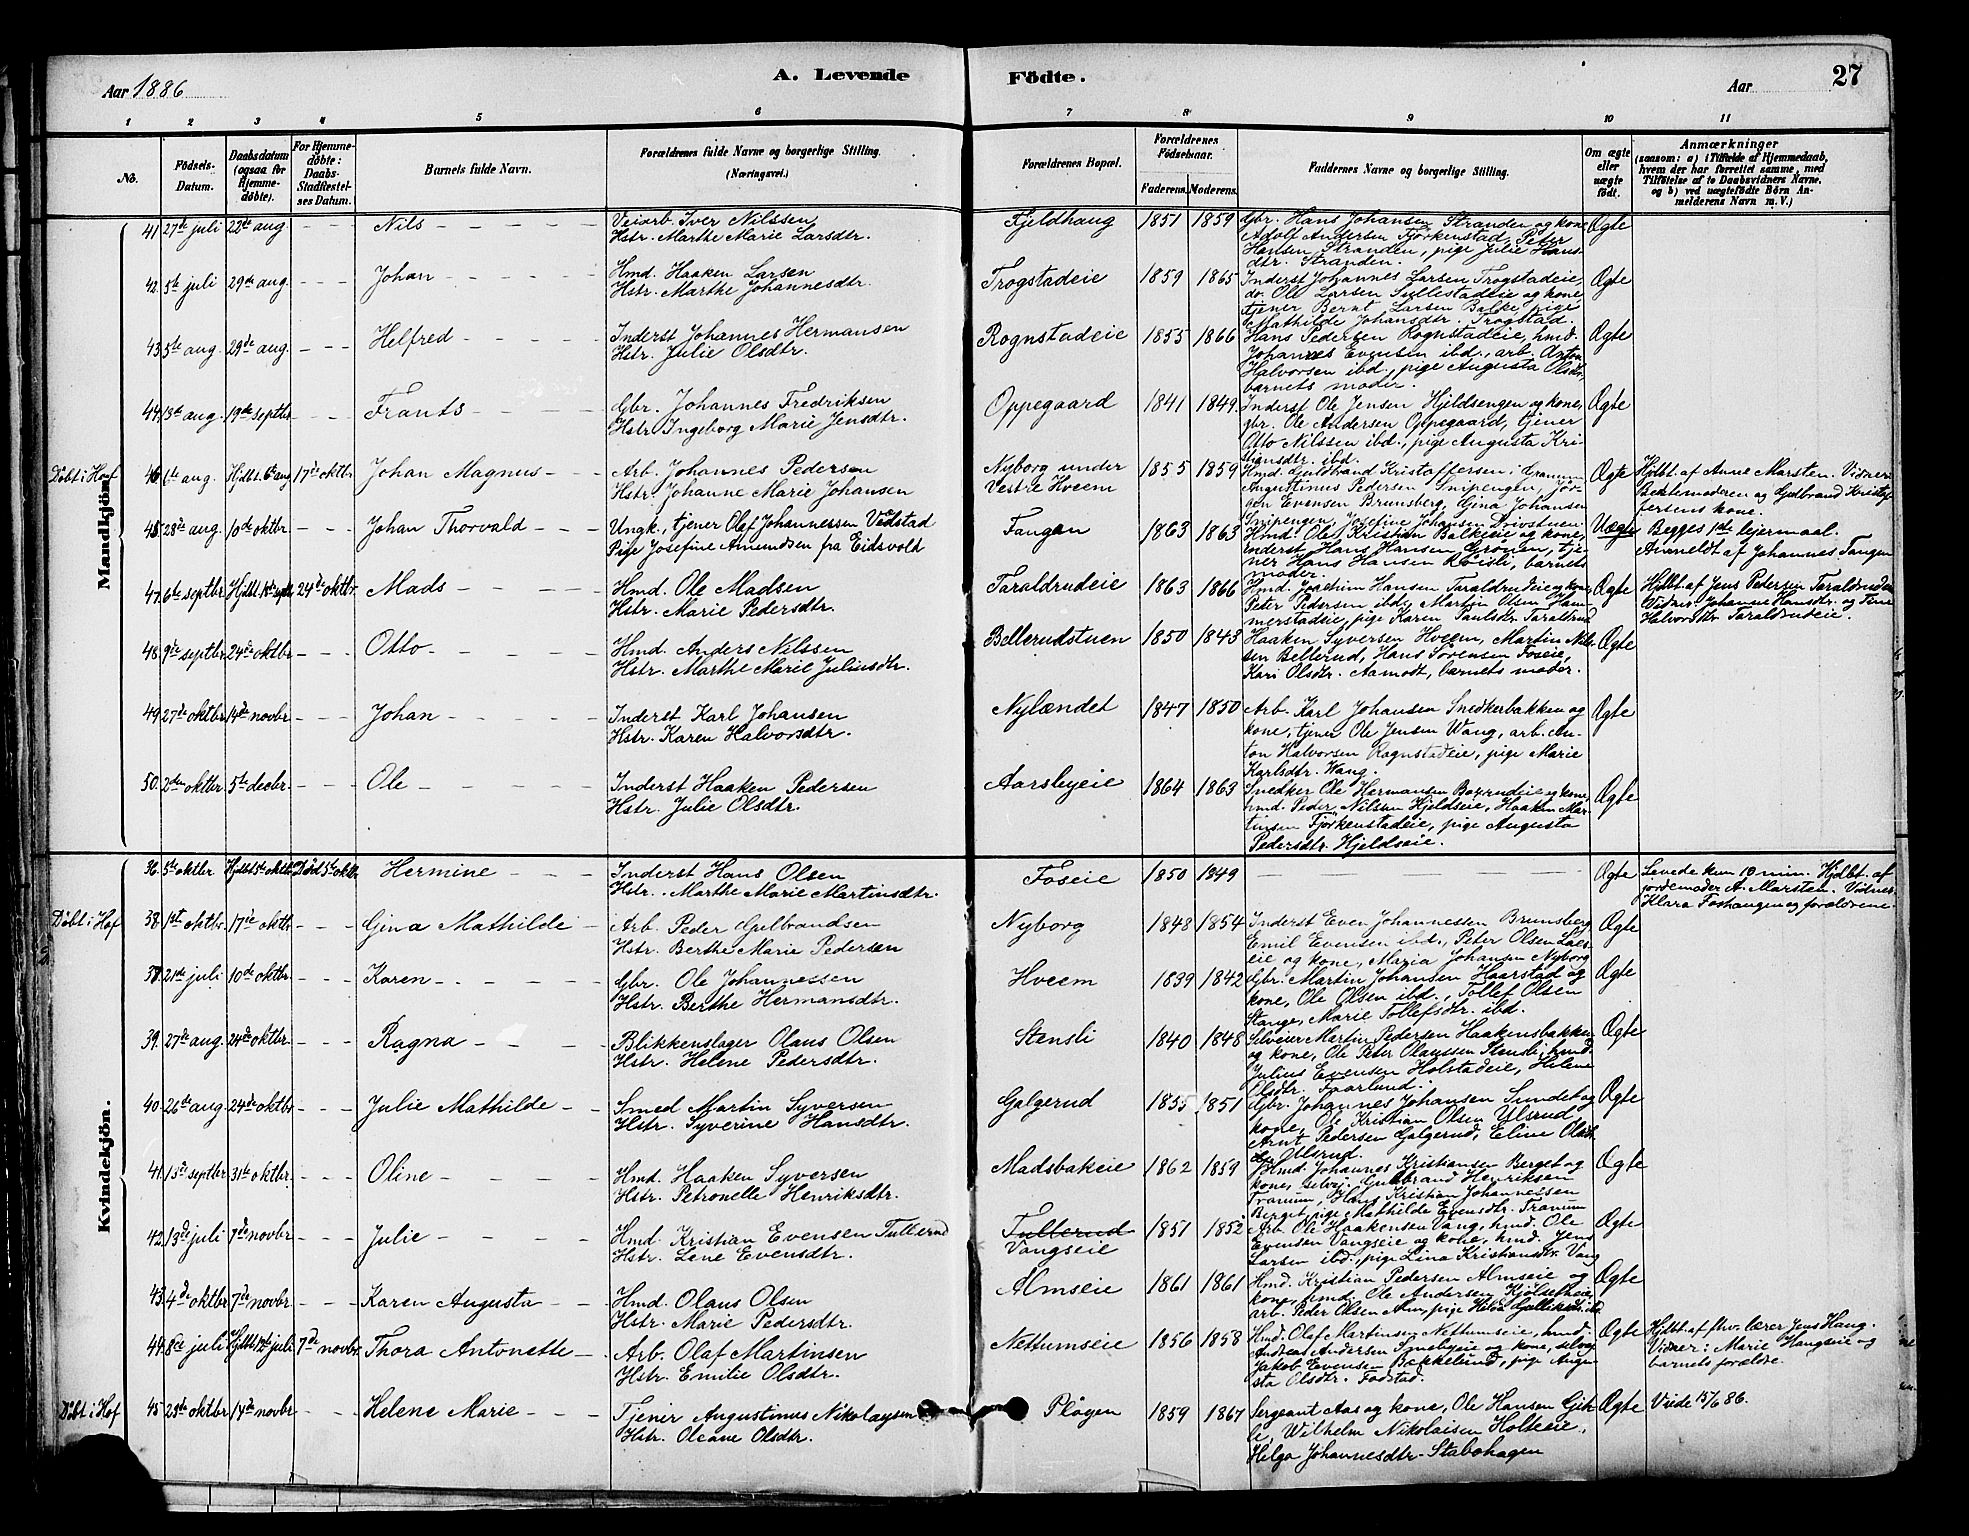 Aar 1886
A. Levende
Födte.
Aar
27
1 2 3 4 5 6 7 8 9 10 11
No.
Födsels-Datum.
Daabsdatum (ogsaa for Hjemmedöbte).
For Hjemmedöbte: Daabs-Stadfæstelses Datum.
Barnets fulde Navn.
Forældrenes fulde Navne og borgerlige Stilling.
(Næringsvei.)
Forældrenes Bopæl.
Forældrenes Födselsaar.
Faderens. Moderens.
Faddernes Navne og borgerlige Stilling.
Om ægte eller uægte födt.
Anmærkninger
(saasom: a) i Tilfælde af Hjemmedaab, hvem der har forrettet samme, med Tilföielse af to Daabsvidners Navne, og b) ved uægtefödte Börn Anmelderens Navn m. V.)
Mandkjön.
41 27de juli 22de aug - - - Nils - - - - Veiarb. Iver Nilssen
Hstr. Marthe Marie Larsdtr.
Fjeldhaug 1851 1859 Gbr. Hans Johansen Stranden og kone
Adolf Andersen Fjörkenstad, Peter
Hansen Stranden, pige Julie Hans-
dtr. Stranden.
Ægte
42. 5te juli 29de aug. - - - Johan - - - - Hmd. Haaken Larsen
Hstr. Marthe Johannesdtr.
Trogstadeie 1859 1865 Inderst Johannes Larsen Trogstadeie,
do. Ole Larsen Sullestadeie og kone,
tjener Bernt Larsen Balke, pige
Mathilde Johansdtr. Trogstad.
Ægte
43. 5te aug. 29de aug. - - - Helfred - - - - Inderst Johannes Hermansen
Hstr. Julie Olsdtr.
Rognstadeie 1855 1866 Hans Pedersen Rognstadeie, hmd.
Johannes Evensen ibd., arb. Anton
Halvorsen ibd., pige Augusta Olsdtr.
barnets moder.
Ægte
44. 13de aug. 19de septbr. - - - Frants - - - - Gbr. Johannes Fredriksen
Hstr. Ingeborg Marie Jensdtr.
Oppegaard 1841 1849. Inderst Ole Jensen Hjeldsengen og kone,
gbr. Ole Andersen Oppegaard, tjener
Otto Nilssen ibd., pige Augusta Kri-
stiansdtr. ibd.
Ægte
Döbt i Hof 46 6te aug. Hjdbt. 6te aug 17de oktbr. Johan Magnus - - - Arb. Johannes Pedersen
Hstr. Johanne Marie Johansen
Nyborg under
Vestre Hveem
1855 1859 Hmd. Guldbrand Kristoffersen,
Augustinus Pedersen Snipengen, Jör-
gen Evensen Brunsberg, Gina Johansen
Snipengen, Josefine Johansen
Ægte Hjdbt. af Anne Marsten. Vidner:
Bestemoderen og Gulbrand Kristof-
fersens kone.
45 28de aug. 10de oktbr. - - - Johan Thorvald - - - Ungk., tjener Olaf Johannessen Vedstad
Pige Josefine Amundsen fra Eidsvold
Tangen 1863 1863 Hmd. Ole Kristian Balkeeie og kone,
inderst Hans Hansen Grönen, tje-
ner Hans Hansen Röisli, barnets
moder.
Uægte Begges 1ste leiermaal.
Anmeldt af Johannes Tangen
47. 6te septbr. Hjdbt. septbr. 24de oktbr. Mads - - - - Hmd. Ole Madsen
Hstr. Marie Pedersdtr.
Taraldrudeie 1863 1866 Hmd. Joachim Hansen Taraldrudeie og kone,
Peter Pedersen ibd., Martin Olsen Ham-
merstadeie, pige Karen Paulsdtr. Taraldrud
Ægte Hjdbt. af Jens Pedersen Taraldrudeie
Vidner: Johanne Hansdtr. og Tine
Halvorsdtr. Taraldrudeie.
48. 9de septbr. 24de oktbr. - - - Otto - - - - Hmd. Anders Nilssen
Hstr. Marthe Marie Juliusdtr.
Bellerudstuen 1850 1843 Haaken Syversen Hveem, Martin Nils-
sen Bellerud, Hans Sörensen Foseie,
Kari Olsdtr. Aamodt, barnets moder.
Ægte
49. 27de oktbr. 14de novbr. - - - Johan - - - - Inderst Karl Johansen
Hstr. Karen Halvorsdtr.
Nylændet 1847 1850 Arb. Karl Johansen Snedkerbakken og
kone, tjener Ole Jensen Wang, arb. An-
ton Halvorsen Rognstadeie, pige Marie
Karlsdtr. Wang.
Ægte
50. 2den oktbr. 5te decbr. - - - Ole - - - - Inderst Haaken Pedersen
Hstr. Julie Olsdtr.
Aarsbyeie 1864 1863 Snedker Ole Hermansen og kone,
hmd. Peder Nilsen Hjeldseie, Haaken Mar-
tinsen Fjörkenstadeie, pige Augusta
Pedersdtr. Hjeldseie.
Ægte
Kvindekjön.
36. 5te oktbr Hjdbt 5te oktbr Död 5te oktbr. Hermine - - - Inderst Hans Olsen
Hstr. Marthe Marie Martinsdtr.
Foseie 1850 1849 — — — Ægte Levede kun 10 min. Hjdbt. af
jordemoder A. Marsten. Vidner:
Klara Foshaugen og forældrene.
Döbt i Hof 38. 1ste oktbr. 17de oktbr. - - - Gina Mathilde - Arb. Peder Gulbrandsen
Hstr. Berthe Marie Pedersen
Nyborg 1848 1854 Inderst Even Johannessen Brunsberg
Emil Evensen ibd., Peter Olsen
eie og kone, Maria Johansen Nyborg
Ægte
37 21de juli 10de oktbr. - - - Karen - - - - Gbr. Ole Johannessen
Hstr. Berthe Hermansdtr.
Hveem 1839 1842 Gbr. Martin Johansen Haarstad og
kone, Ole Olsen ibd., Tollef Olsen
Stange, Marie Tollefsdtr. ibd.
Ægte
39. 27de aug. 24de oktbr. - - - Ragna - - - Blikkenslager Olaus Olsen
Hstr. Helene Pedersdtr.
Stensli 1840 1848 Selveier Martin Pedersen Haakensbakken
og kone, Ole Peter Olaussen Stensli, hmd.
Julius Evensen Holstadeie, Helene
Olsdtr. Faarlund.
Ægte
40. 26de aug. 24de oktbr. - - - Julie Mathilde - - Smed Martin Syversen
Hstr. Syverine Hansdtr.
Galgerud 1855 1851 Gbr. Johannes Johansen Sundet og
kone, Ole Kristian Olsen Ulsrud
Arnt Pedersen Galgerud, Eline Olsdtr.
Ulsrud.
Ægte
41. septbr. 31te oktbr. - - - Oline - - - - Hmd. Haaken Syversen
Hstr. Petronelle Henriksdtr.
Madsbakeie 1862 1859 Hmd. Johannes Kristiansen Berget og
kone, selvej. Guldbrand Henriksen
Tranum, Hans Kristian Johannessen
Berget, pige Mathilde Evensdtr. Tranum
Ægte
42. 13de juli 7de novbr. - - - Julie - - - - Hmd. Kristian Evensen Tullerud
Hstr. Lene Evensdtr.
Tullerud
Vangseie
1851 1852 Arb. Ole Haakensen Vang, hmd. Ole
Evensen Vangseie og kone, hmd. Jens
Larsen ibd., pige Lina Kristiansdtr. Vang
Ægte
43. 4de oktbr. 7de novbr. - - - Karen Augusta - - Hmd. Olaus Olsen
Hstr. Marie Pedersdtr.
Almseie 1861 1861 Hmd. Kristian Pedersen Almseie og
kone, hmd. Ole Andersen Kjölsetheie,
arb. Peder Olsen Alm, pige
Ægte
44. 8de juli Hjdbt. juli 7de novbr. Thora Antonette - Arb. Olaf Martinsen
Hstr. Emilie Olsdtr.
Nethumseie 1856 1858 Hmd. Olaf Martinsen Nethumseie, hmd.
Andreas Andersen og kone, selvej.
Jakob Evensen Bakkelund, pige Augu-
sta Olsdtr. Fodstad.
Ægte Hjdbt. af fhv. lærer Jens Haug.
Vidner: Marie Haugseie og
barnets forældre.
Döbt i Hof 45 28de oktbr. 14de novbr. - - - Helene Marie - - - Tjener Augustinus Nikolaysen
Hstr. Oleane Olsdtr.
Plögen 1859 1867 Sergeant Aas og kone, Ole Hansen
Wilhelm Nikolaisen Holteeie,
Helga Johannesdtr. Stabohagen
Ægte Viede 15/6 86.